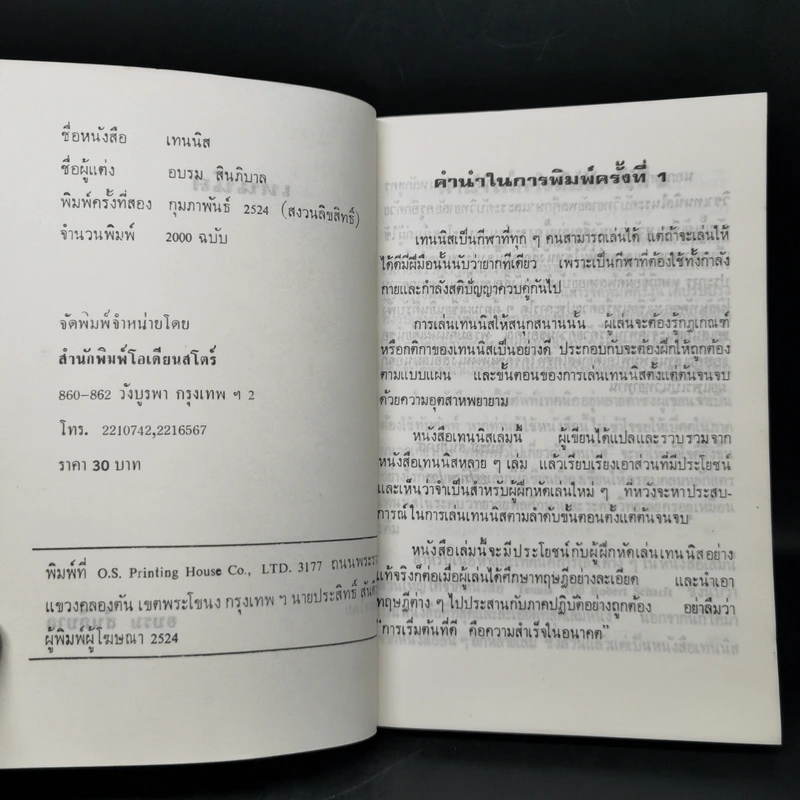 ชื่อหนังสือ เทนนิส
ชื่อผู้แต่ง อบรม สินภิบาล
พิมพ์ครั้งที่สอง กุมภาพันธ์ 2524 (สงวนลิขสิทธิ์)
จำนวนพิมพ์ 2000 ฉบับ
จัดพิมพ์จำหน่ายโดย
สำนักพิมพ์โอเดียนสโตร์
860-862 วังบูรพา กรุงเทพ ฯ 2
โทร. 2210742,2216567
ราคา 30 บาท
พิมพ์ที่ O.S. Printing House Co., LTD. 3177 ถนนพระราม
แขวงคลองตัน เขตพระโขนง กรุงเทพ ฯ นายประสิทธิ์
ผู้พิมพ์ผู้โฆษณา 2524
คำนำในการพิมพ์ครั้งที่ 1
เทนนิสเป็นกีฬาที่ทุก ๆ คนสามารถเล่นได้ แต่ถ้าจะเล่นให้
ได้ดีมีฝีมือนั้นนับว่ายากทีเดียว เพราะเป็นกีฬาที่ต้องใช้ทั้งกำลัง
กายและกำลังสติปัญญาควบคู่กันไป
การเล่นเทนนิสให้สนุกสนานนั้น ผู้เล่นจะต้องรู้กฎเกณฑ์
หรือกติกาของเทนนิสเป็นอย่างดี ประกอบกับจะต้องฝึกให้ถูกต้อง
ตามแบบแผน และขั้นตอนของการเล่นเทนนิสตั้งแต่ต้นจนจบ
ด้วยความอุตสาหพยายาม
หนังสือเทนนิสเล่มนี้ ผู้เขียนได้แปลและรวบรวมจาก
หนังสือเทนนิสหลาย ๆ เล่ม แล้วเรียบเรียงเอาส่วนที่มีประโยชน์
และเห็นว่าจำเป็นสำหรับผู้ฝึกหัดเล่นใหม่ ๆ ที่หวังจะหาประสบ-
การณ์ในการเล่นเทนนิสตามลำดับขั้นตอนตั้งแต่ต้นจนจบ
หนังสือเล่มนี้จะมีประโยชน์กับผู้ฝึกหัดเล่นเทนนิสอย่าง
แท้จริงก็ต่อเมื่อผู้เล่นได้ศึกษาทฤษฎีอย่างละเอียด และนำเอา
ทฤษฎีต่าง ๆ ไปประสานกับภาคปฏิบัติอย่างถูกต้อง อย่าลืมว่า
"การเริ่มต้นที่ดี คือความสำเร็จในอนาคต"